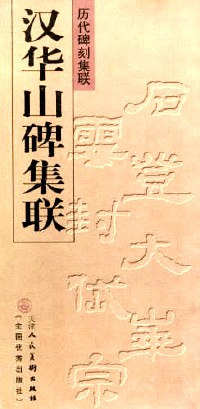 历代碑刻集联
汉华山碑集联
石登大华
云封岱宗
天津人民美术出版社
(全国优秀出版社)